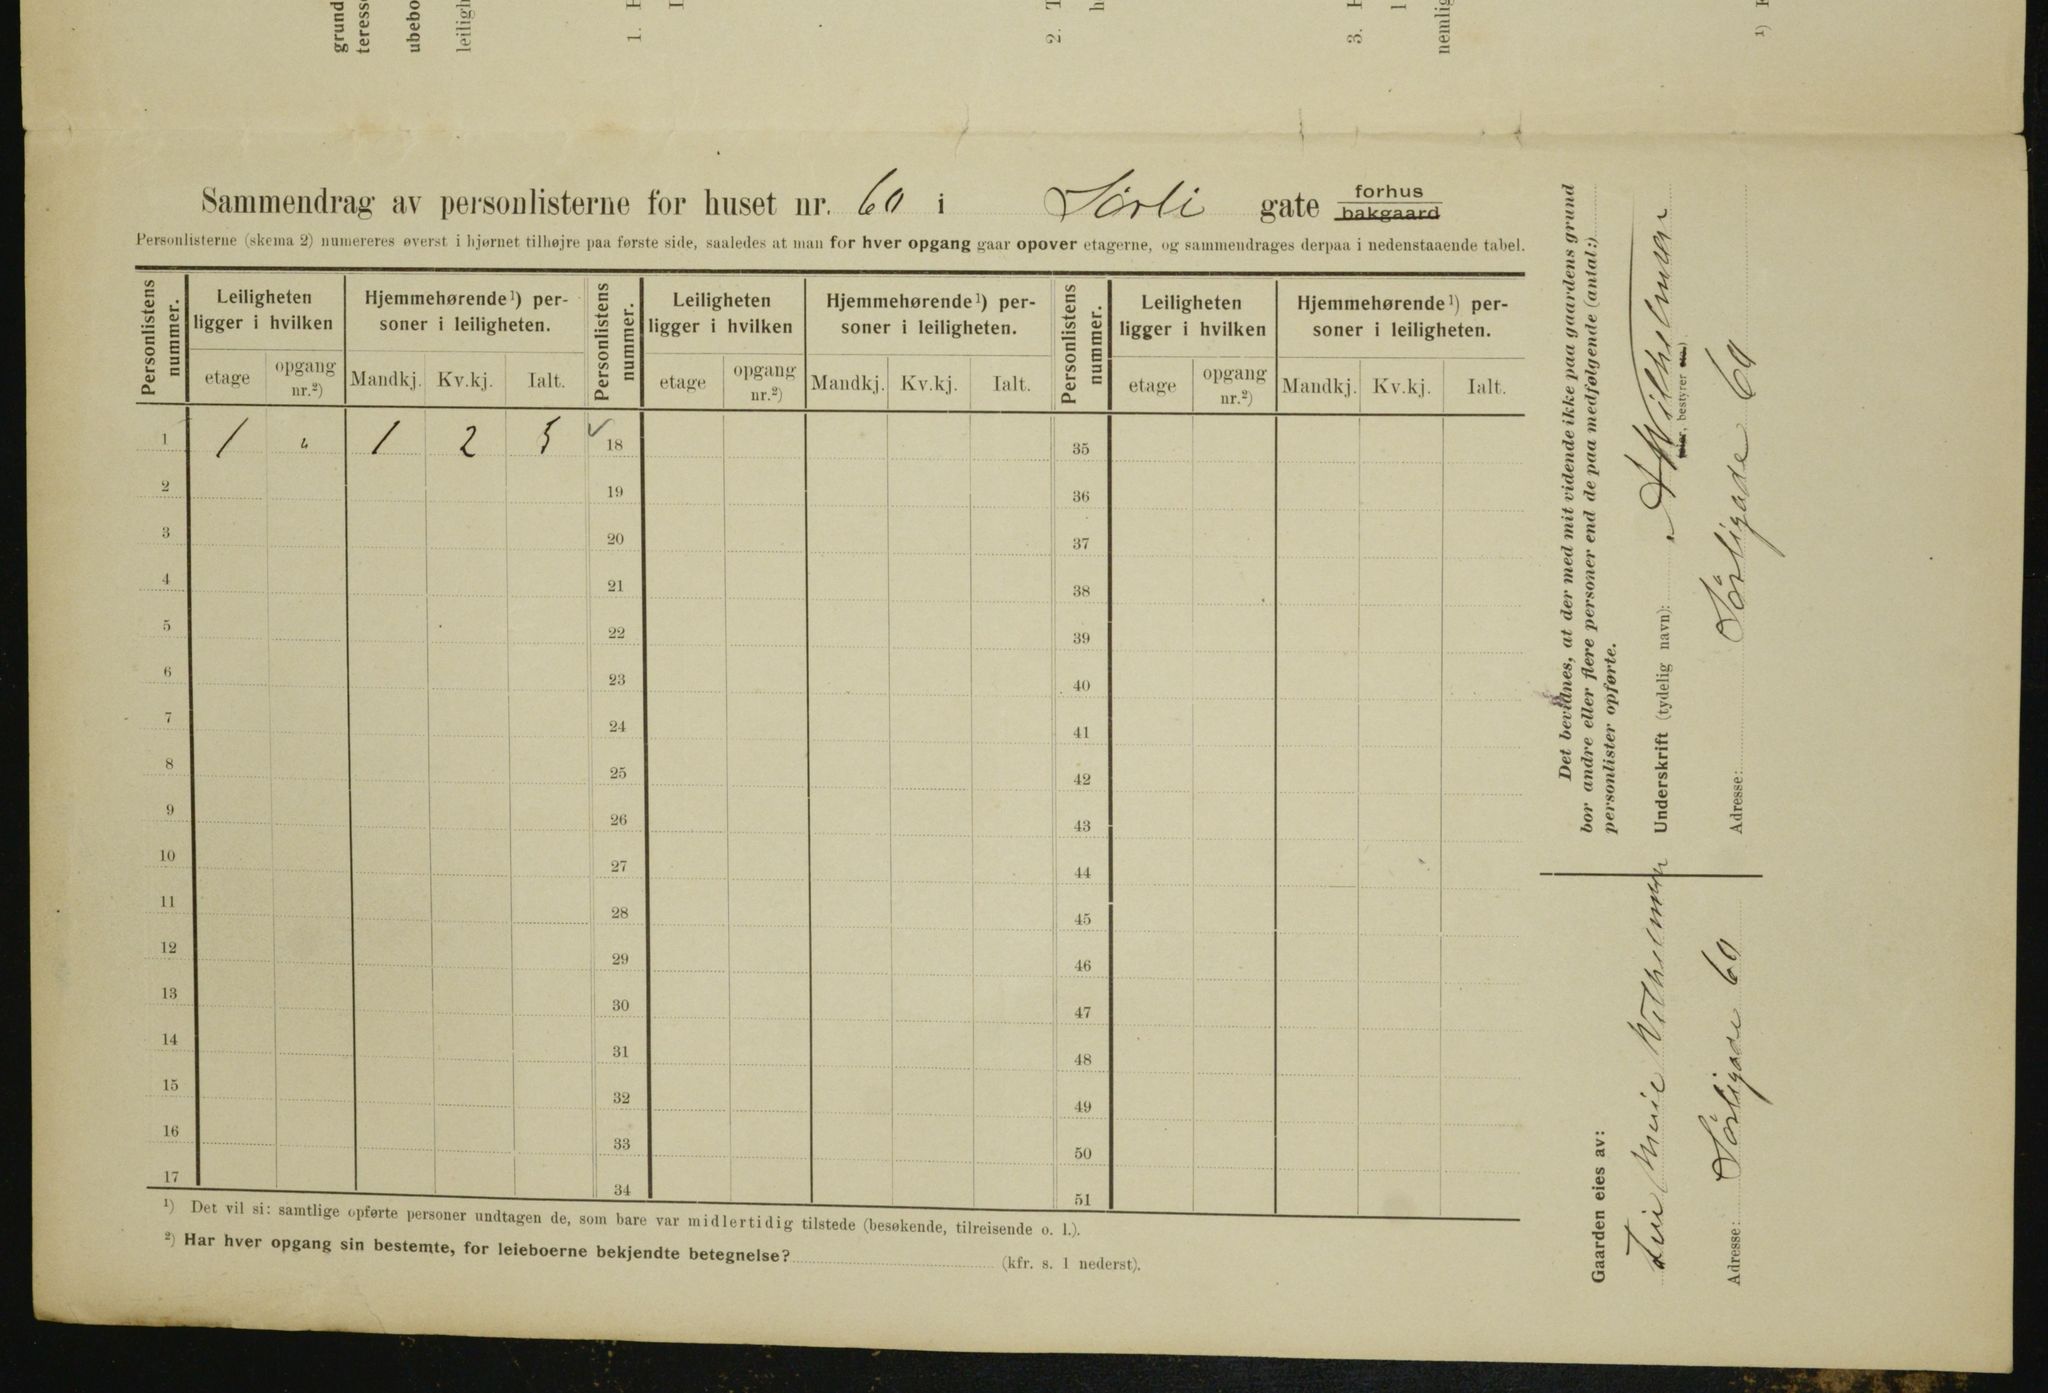 grund
teress
ubebo
leiligh
1.
2.
3.
nemlig
Sammendrag av personlisterne for huset nr. 60 i Sørli gate forhus
bakgaard
Personlisterne (skema 2) numereres øverst i hjørnet tilhøjre paa første side, saaledes at man for hver opgang gaar opover etagerne, og sammendrages derpaa i nedenstaaende tabel.
Personlistens nummer. Leiligheten ligger i hvilken Hjemmehørende¹) per-soner i leiligheten. Personlistens nummer. Leiligheten ligger i hvilken Hjemmehørende¹) per-soner i leiligheten. Personlistens nummer. Leiligheten ligger i hvilken Hjemmehørende¹) per-soner i leiligheten.
etage opgang nr.²) Mandkj. Kv.kj. Ialt. etage opgang nr.²) Mandkj. Kv.kj. Ialt. etage opgang nr.²) Mandkj. Kv.kj. Ialt.
1 1 " 1 2 5 ✓ 18 35
2 19 36
3 20 37
4 21 38
5 22 39
6 23 40
7 24 41
8 25 42
9 26 43
10 27 44
11 28 45
12 29 46
13 30 47
14 31 48
15 32 49
16 33 50
17 34 51
¹) Det vil si: samtlige opførte personer undtagen de, som bare var midlertidig tilstede (besøkende, tilreisende o. l.).
²) Har hver opgang sin bestemte, for leieboerne bekjendte betegnelse? (kfr. s. 1 nederst).
Det bevidnes, at der med mit vidende ikke paa gaardens grund
bor andre eller flere personer end de paa medfølgende (antal:)
personlister opførte.
Underskrift (tydelig navn): A Wilhelmsen
eier, bestyrer etc.)
Adresse: Sørligade 60
Gaarden eies av:
Wilhelmsen
Adresse: Sørligade 60